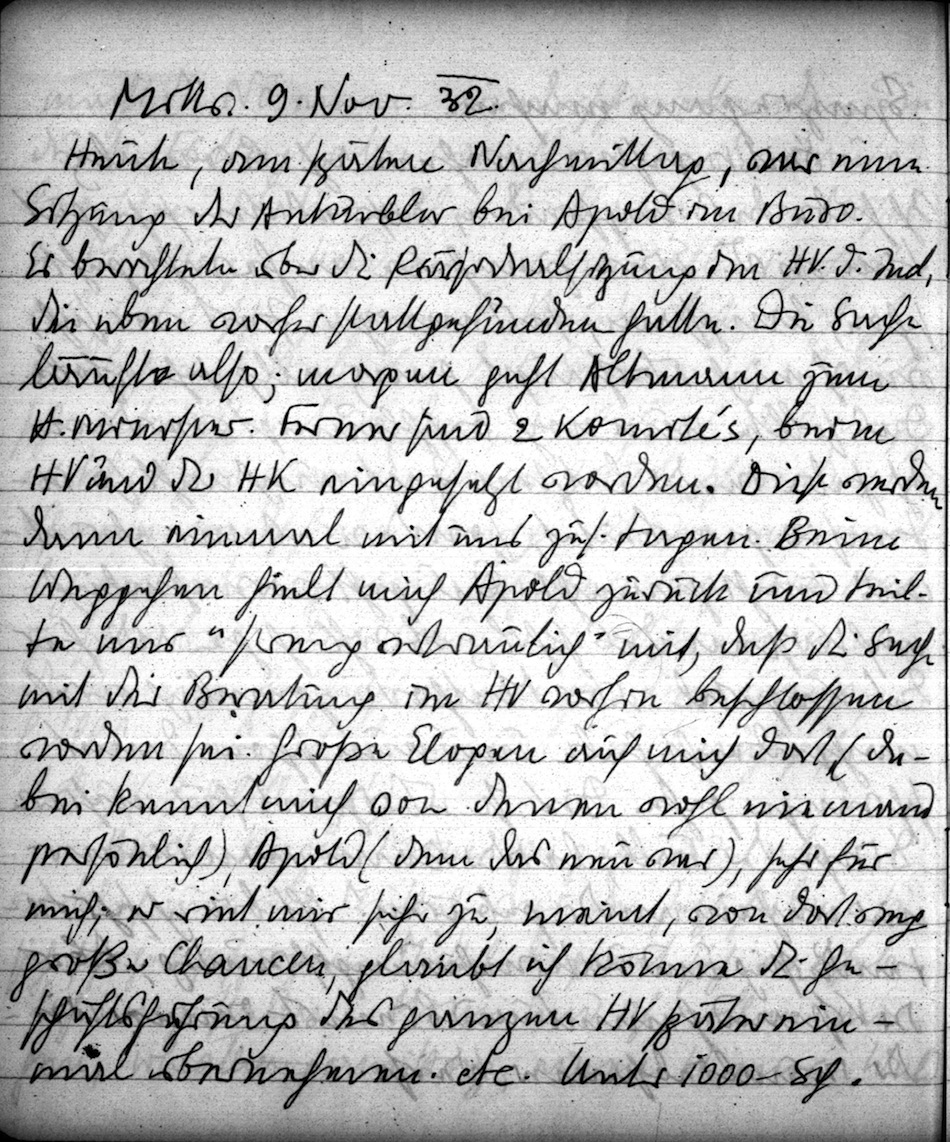 Mittw. 9. Nov. 32.
Heute, am späten Nachmittag, war eine
Sitzung der Ankurbler bei Apold im Büro.
Er berichtete über die Präsidialsitzung im HV. d. Ind,
die eben vorher stattgefunden hatte. Die Sache
läuft also; morgen geht Altmann zum
H.minister. Ferner sind 2 Komités, beim
HV und der HK eingesetzt worden. Diese werden
dann einmal mit uns zus. tagen. Beim
Weggehen hielt mich Apold zurück und teil-
te mir "streng vertraulich" mit, daß die Sache
mit der Beratung im HV vorhin beschlossen
worden sei. Große Elogen auf mich dort (da-
bei kennt mich von denen wohl niemand
persönlich), Apold (dem das neu war), sehr für
mich; er riet mir sehr zu, meint, von dort weg
große Chancen, glaubt ich könne die Ge-
schäftsführung des ganzen HV später ein-
mal übernehmen. etc. Unter 1000 Sch.